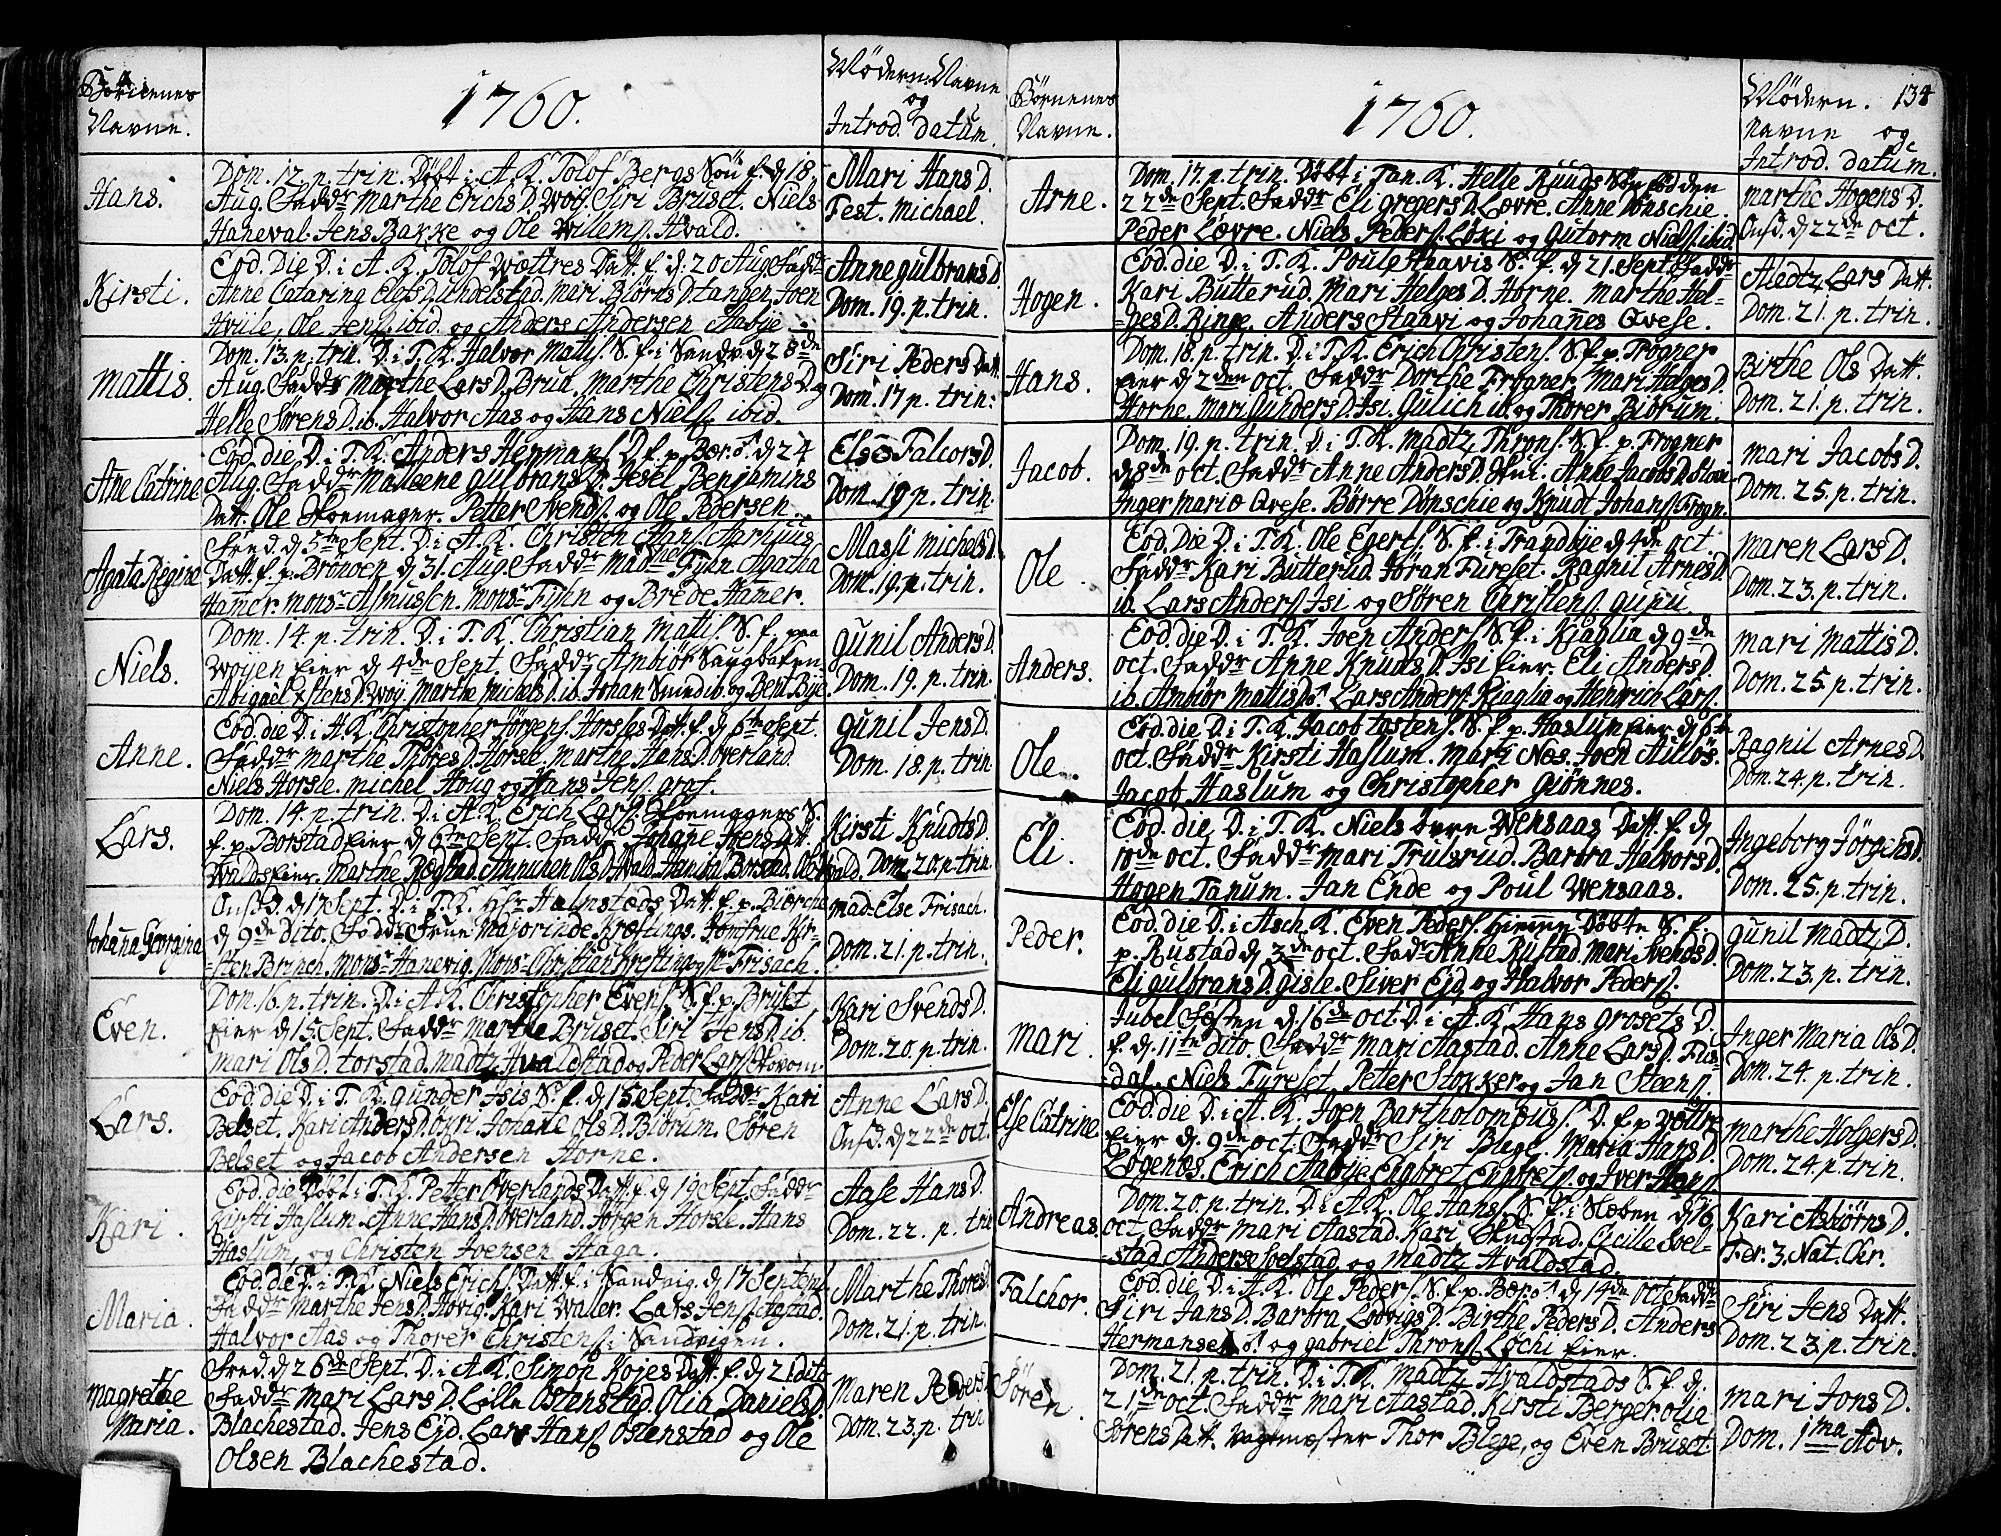 Börnenes
Navne.
1760.
Mödern. Navne
og
Introd. datum.
Hans.
Dom. 12. p. trin. Döbt i A. K. Tolof Bergs Sön f. d 18
Aug. Faddr Marthe Erichs D. Woy. Siri Bruset. Niels
Haneval. Jens Bakke og Ole Willems. Hvald.
Mari Hans D.
Fest. Michael.
Kirsti.
Eod. Die D. i A. K. Tolof Wættres Datt. f. d. 20 Aug Faddr
Anne Cataring Elefs D. undelstad. Mari Biörns D. tangen Joen
Hviile, Ole Jens. ibid. og Anders Andersen Aabye
Anne gulbrans D
Dom. 19. p. trin.
Mattis.
Dom. 13. p. trin. D. i T. K. Halvor Mattis. S. f. i Sandv. d 28de
Aug. Faddr Marthe Lars D. Brud. Marthe Christens D. og
Helle Sörens D. ib. Halvor Aas og Hans Niels. ibid.
Siri Peders Datt.
Dom. 17 p. trin.
Ane Catrine
Eod. die D. i T. K. Anders Hermans. D. f. p. Bær. d 24
Aug. Faddr Madleene gulbrans D. Jesel Benjamins
Datt. Ole Skoemager. Petter Svends. og Ole Pedersen.
Else Falcors D.
Dom. 19 p. trin.
Agata Regine
Fred. d 5te Sept. D. i A. K. Christen Hans. Aarhuus
Datt. f. p. Brönöen d 31. Aug Faddr Madme Fyhn Agatha
Hamer. Monsr Asmussen. Monsr Fyhn og Brede Hamer.
Massi Michels D.
Dom. 19. p. trin.
Niels.
Dom. 14. p. trin. D. i T. K. Christian Mattis. S. f. paa
Woyen Eier d 4de Sept Faddr Ambiör Saugbaken
Abigael Xstens D. Woy. Marthe Michels D. ib. Johan Smed ib. og Bent Bye
gunil Anders D.
Dom. 19. p. trin.
Anne.
Eod. die D. i H. K. Christopher Jörgens. Horsles Datt. f. d 6te Sept.
Faddr Marthe Thores D. Horsle. Marthe Hans D. Overland.
Niels Horsle. Michel Houg og Hans Jens. graf.
gunil Jens D.
Dom. 18. p. trin
Lars.
Dom. 14. p. trin. D. i A. K. Erich Lars. Skoemagers S.
f. p. Borstad Eier d 6te Sept. Faddr Johane Jens Datt.
Hvalds Eier. Marthe Ols D. Hvald. Borstad.
Kirsti Knudts D.
Dom. 20. p. trin
Johana Georgina
Onsd. d 17 Sept. D. i T. K. Hr Halmstæds Datt. f. p. Biörche
d 9de dito. Faddr Frue Majorinde Kreftings. Jomfrue Kir-
-sten Brinch. Monsr Hanevig. Monsr Christian Krefting og Hr Frisach.
Mad. Else Frisach.
Dom. 21. p. trin.
Even.
Dom. 16. p. trin. D. i A. K. Christopher Evens. S. f. p. Bruset
Eier d 15. Sept. Faddr Marthe Bruset. Siri Jens D. ib.
Mari Ols D. torstad. Madtz Hvalestad og Peder Lars.
Kari Svends D.
Dom. 20. p. trin.
Lars.
Eod. die D. i T. K. gunder Isis S. f. d 15 Sept Faddr Kari
Belset. Kari Anders D. Johane Ols D. Biörum. Sören
Belset og Jacob Andersen Horne.
Anne Lars D.
Onsd. d 22de oct.
Kari.
Eod. die Döbt i T. K. Petter Overlands Datt. f. d 19 Sept. Faddr
Kirsti Haslum. Anne Hans D. Overland. Jörgen Horsle. Hans
Haslum, og Christen Joensen Haga.
Aase Hans D.
Dom. 22. p. trin
Maria.
Eod. die D. i T. K. Niels Erichs. Datt. f. i Sandvig. d 17 Septem.
Faddr Marthe Jens D. Hövig. Kari Waller. Lars Jens. Aastad.
Halvor Aas og Thorer Christens. i Sandvigen.
Marthe Thores D
Dom. 21. p. trin.
Magrethe
Maria.
Fred. d 26de Sept. D. i A. K. Simon Kojes Datt. f. d 21 dito
Faddr Mari Lars D. Lille Ostenstad. Olia Daniels D.
Blachestad. Jens Ejd. Lars Hans. Ostenstad og Ole
Olsen Blachestad.
Maren Peders D
Dom. 23. p. trin
Börnenes
Navne.
1760.
Mödern. 134
navne og
Introd. datum.
Arne.
Dom. 17. p. trin. Döbt i Tan. K. Helle Ruuds Sön föd den
22de Sept. Faddr Eli gregers D. Lövre. Anne Dönschie.
Peder Lövre. Niels Peders. Löxi og Gutorm Niels. ibid.
Marthe Hogens D.
Onsd. d 22de oct.
Hogen.
Eod. die D. i T. K. Poul Staavis S. f. d 21. Sept. Faddr
Kari Butterud. Mari Helges D. Horne. Marthe Hel-
-ges D. Ringe. Anders Staavi og Johannes Qvese.
Aledtz Lars Datt.
Dom. 21. p. trin.
Hans.
Dom. 18. p. trin. D. i T. K. Erich Christens. S. f. p. Frogner
Eier d 2den oct. Faddr Dorthe Frogner. Mari Helges D.
Horne. Mari Gunders D. Isi. Gulich ib. og Thorer Biörum.
Birthe Ols Datt.
Dom. 21. p. trin.
Jacob.
Dom. 19. p. trin. D. i T. K. Madtz Throns. S. f. p. Frogner
d 8de oct. Faddr Anne Anders D. Anne Jacobs D.
Inger Maria Qvese. Börre Dönschie og Knudt Johans. Frogn.
Mari Jacobs D.
Dom. 25. p. trin.
Ole.
Eod. Die D. i T. K. Ole Egerts. S. f. i Trandbye d 4de oct
Faddr Kari Butterud. Jöran Fureset. Ragnil Arnes D.
ib. Lars Anders. Isi og Sören Carstens.
Maren Lars D.
Dom. 23. p. trin.
Anders.
Eod. die D. i T. K. Joen Anders. S. f. i Kiaglia d 9de
oct. Faddr Anne Knuds D. Isi Eier. Eli Anders D.
ib. Ambiör Mattis D. Lars Anders. Kiaglia og Hendrich Lars.
Mari Mattis D.
Dom. 25. p. trin.
Ole.
Eod. die D. i T. K. Jacob tostens. S. f. p. Haslum Eier d 6te
oct. Faddr Kirsti Haslum. Mari Næs. Joen Aulös.
Jacob Haslum og Christopher Giönnes.
Ragnil Arnes D.
Dom. 24. p. trin.
Eli.
Eod. die D. i T. K. Niels övre Wensaas Datt. f. d
10de oct. Faddr Mari Trulsrud. Barbra Halvors D.
Hogen Tanum. Jan Ende og Poul Wensaas.
Ingeborg Jörgens D.
Dom. 25. p. trin.
Peder.
Eod. die D. i Asch. K. Even Peders. Hiemme Döbte S. f.
p. Rustad d 3de oct. Fadr Anne Rustad. Mari Svends D.
Eli gulbrans D. gisle. Siver Ejd, og Halvor Peders.
gunil Madtz D.
Dom. 23. p. trin.
Mari.
Jubel Festen d 16de oct. D. i A. K. Hans grosets D.
f. d. 11te dito. Faddr Mari Aastad. Anne Lars D. Flus-
dal. Niels Fureset. Petter Stokker og Jan Steens.
Inger Maria Ols D.
Dom. 24. p. trin.
Else Catrine
Eod. die D. i A. K. Joen Bartholomeus. D. f. p. Wættre
Eier d. 9de oct. Faddr Siri Blege. Maria Hans D.
Logenæs. Erich Aabye. Engbret Engbrets. og Iver Hans.
Marthe Holgers D.
Dom. 24. p. trin.
Andreas.
Dom. 20. p. trin. D. i A. K. Ole Hans. S. f. i Sleben d 16
oct. Faddr Mari Aastad. Kari Skugstad. Cicille Soel-
-stad Anders Soelstad og Madtz Hvaldstad.
Kari Asbiörns D.
Fer. 3. Nat. Chr.
Falchor.
Eod. die D. i A. K. Ole Peders. S. f. p. Bær. d 14de oct Faddr
Siri Jans D. Barbra Lodvigs D. Birthe Peders D. Anders
Hermansen og gabriel Throns. Lochi Eier.
Siri Jens Datt.
Dom. 23. p. trin.
Sören.
Dom. 21. p. trin. D. i T. K. Madtz Hvaldstads S. f. d.
21de oct. Faddr Mari Aastad. Kirsti Berger. olia
Sörens Datt. Vagtmæster Thor Blege, og Even Bruset.
Mari Jons D.
Dom. 1ma Adv.